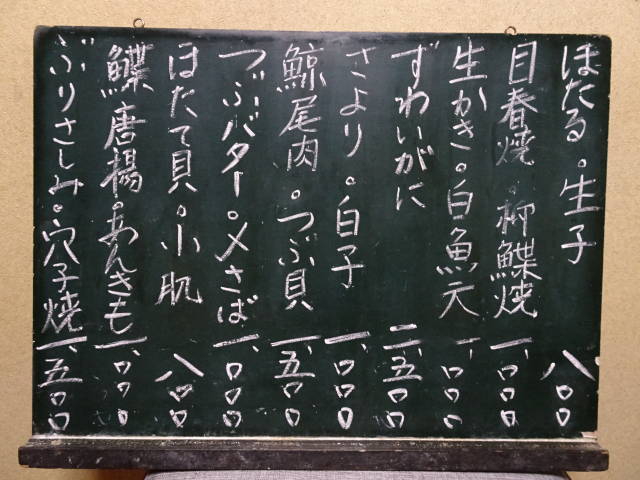 ほたる。生子 八〇〇
目春焼。柳鰈焼 一、〇〇〇
生かき。白魚天 一、〇〇〇
ずわいがに 二、五〇〇
さより。白子 一、〇〇〇
鯨尾肉。つぶ貝 一、五〇〇
つぶバター。〆さば 一、〇〇〇
ほたて貝。小肌 八〇〇
鰈唐揚。あんきも 一、〇〇〇
ぶりさしみ。穴子焼 一、五〇〇